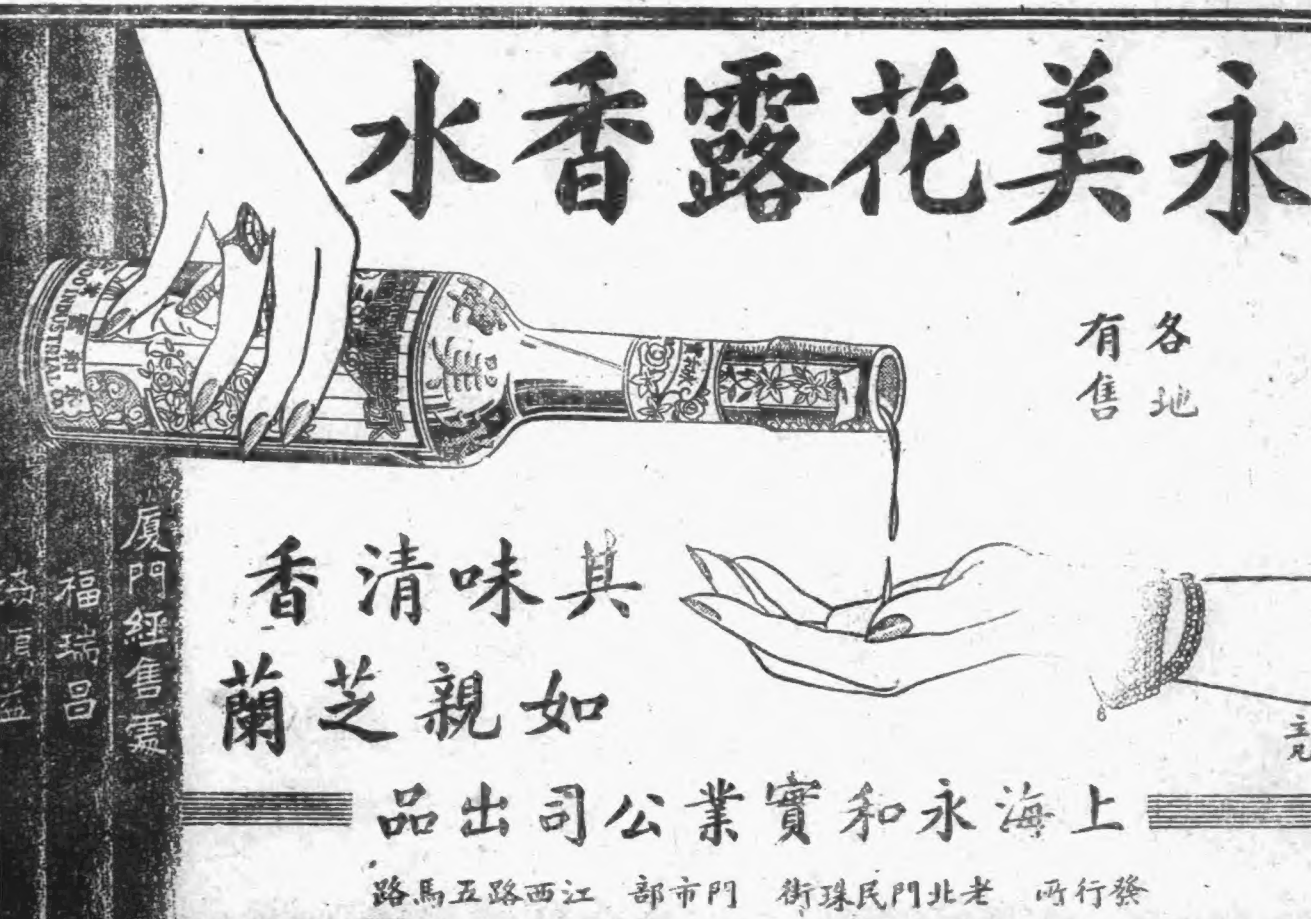 永美花露香水
各地
有售
其味清香
如親芝蘭
上海永和實業公司出品
發行所 老北門民珠街 門市部 江西路五馬路
廈門經售處
福瑞昌
INDUSTRIAL CO